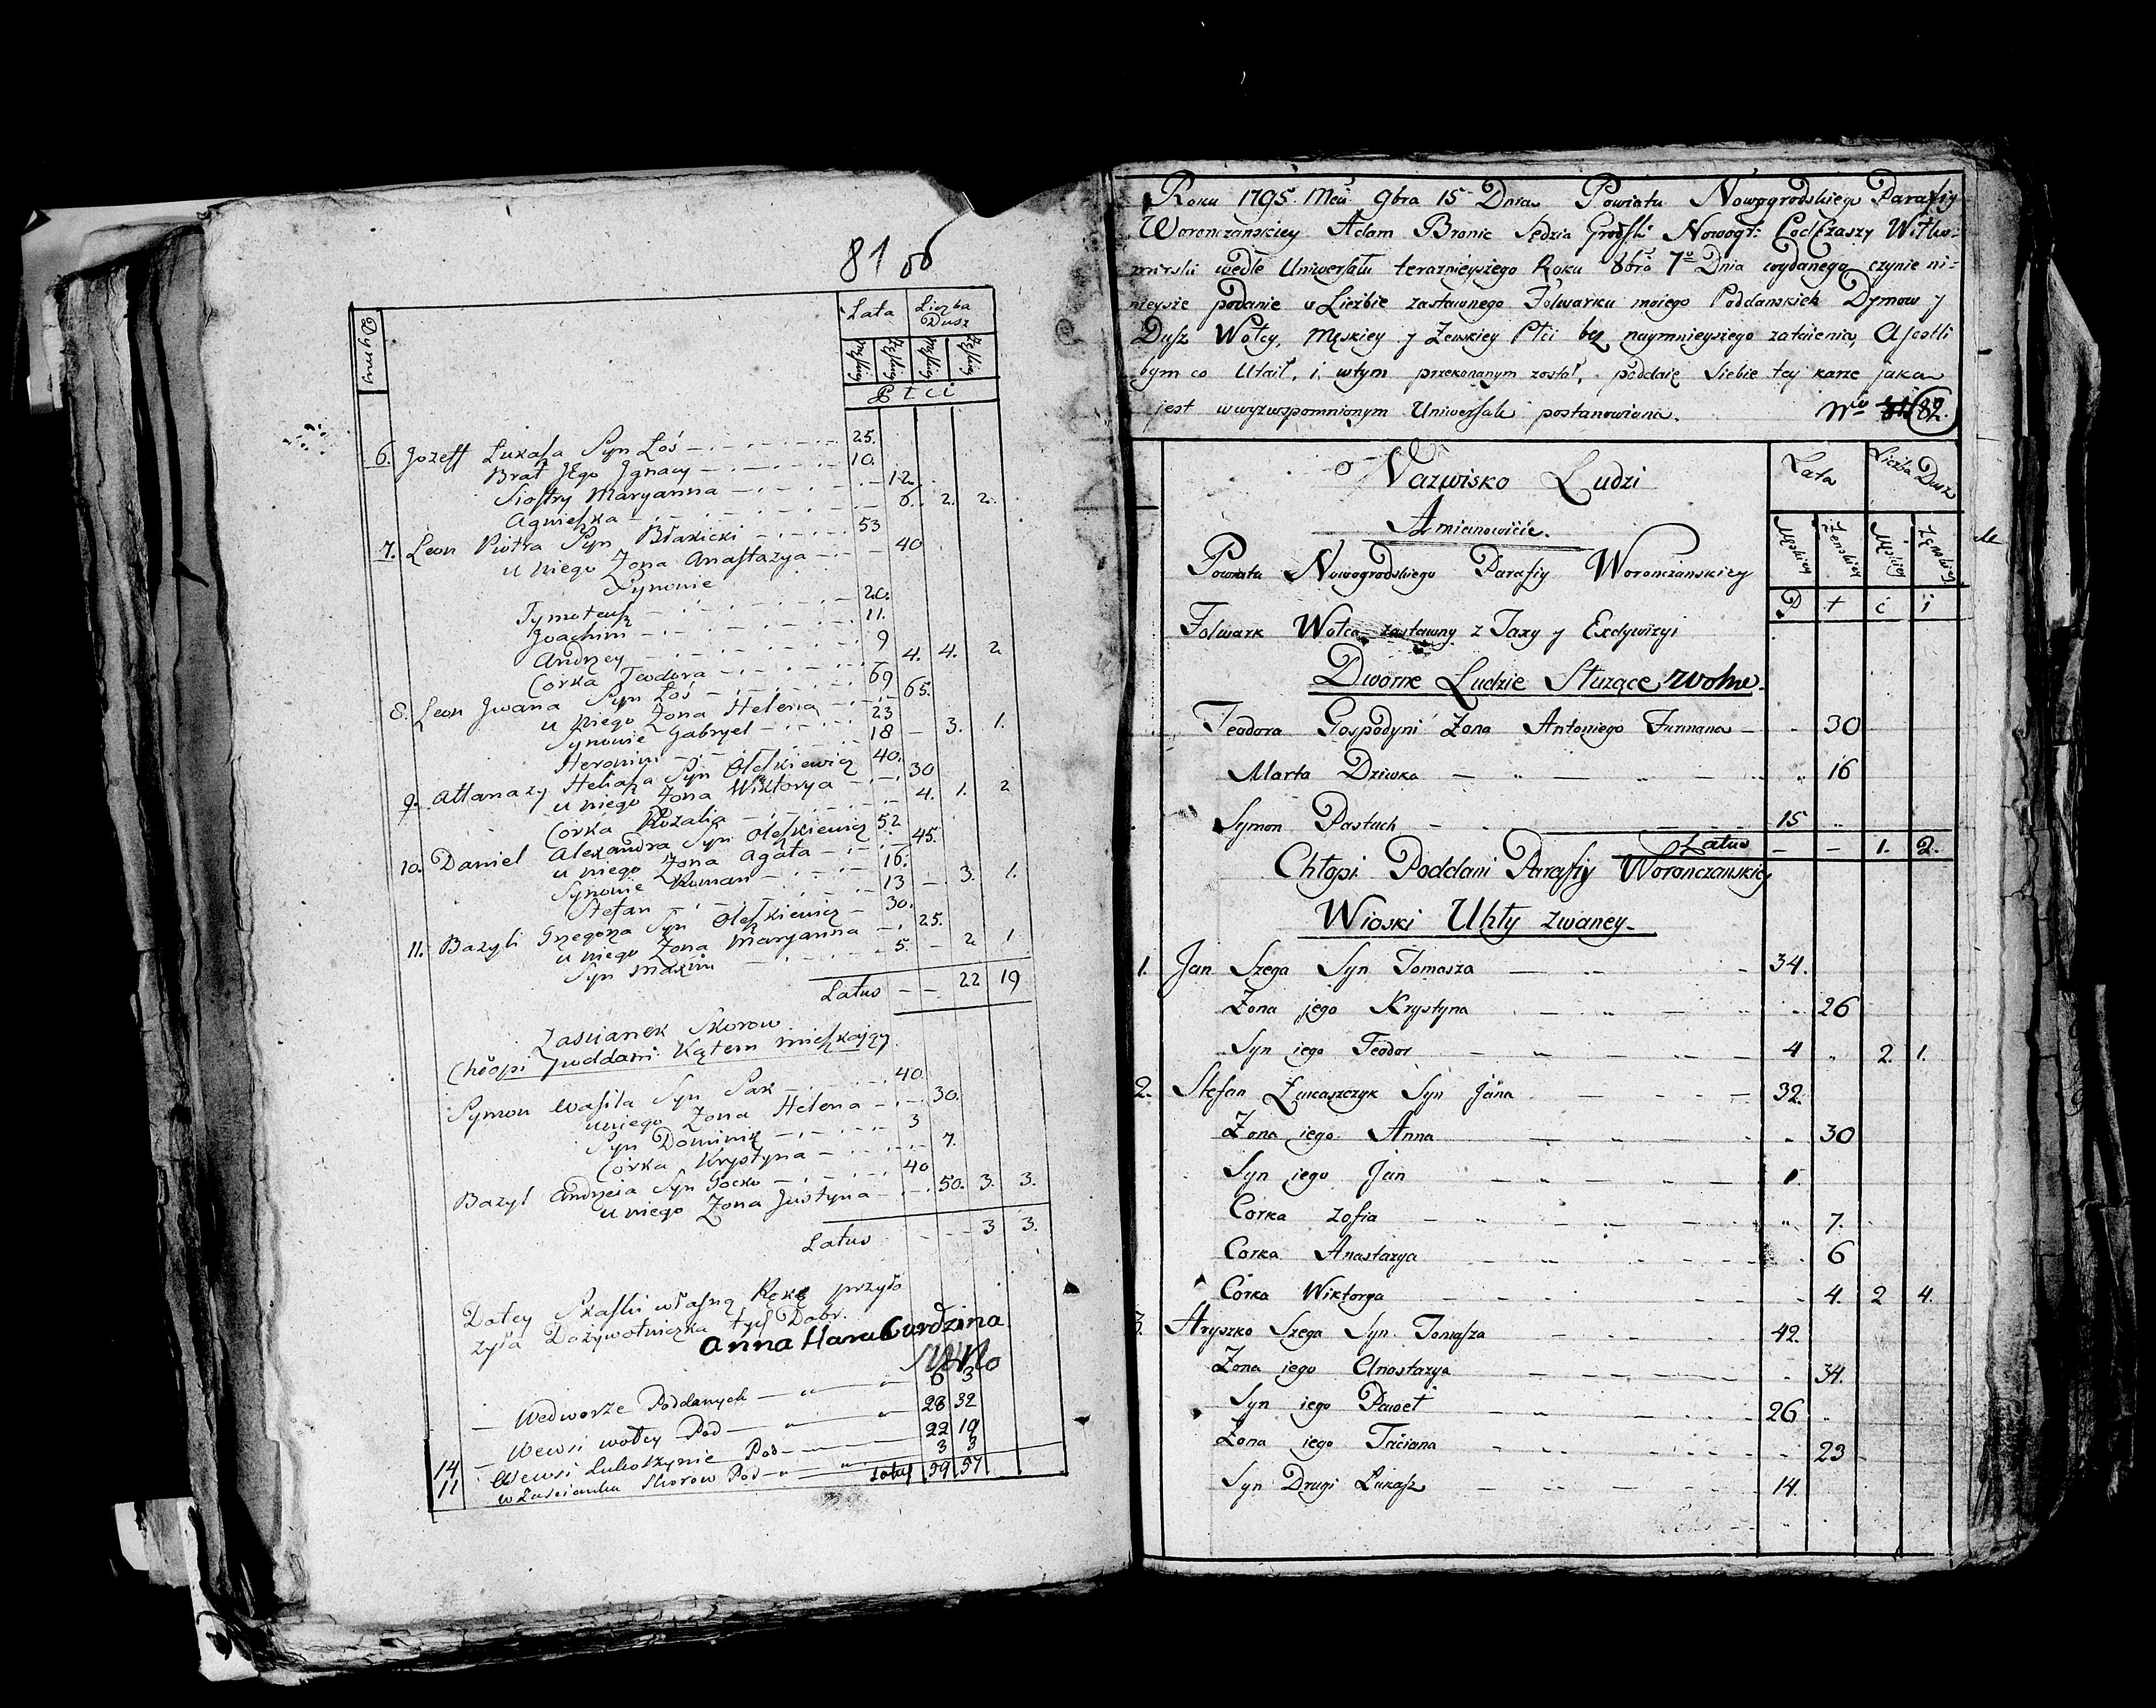 81 об
Dymy
Lata Liczba Dusz
Męskiey Żęskiey Męskiey Żęskiey
Ptci
6. Jozeff Łukasza Syn Łoś 25.
Brat Jego Jgnacy 10.
Siostry Maryanna 12.
Agnieszka 6. 2. 2.
7. Leon Piotra Syn Błaxicki 53
u niego Żona Anastazya 40
Synowie
Tymoteusz 20.
Joachim 11.
Andrzey 9
Corka Teodora 4. 4. 2
8. Leon Jwana Syn Łoś 69
u niego Żona Helena 65.
Synowie Gabryel 23
Heronim 18 3. 1.
9. Attanazy Heliasza Syn Oleszkiewicz 40.
u niego Żona Wiktorya 30
Corka Rozalia 4. 1. 2
10. Daniel Alexandra Syn Oleszkiewicz 52
u niego Żona Agata 45.
Synowie Roman 16.
Stefan 13 3. 1.
11. Bazyli Grzegorza Syn Oleszkiewicz 30.
u niego Żona Maryanna 25.
Syn Maxim 5. 2 1
Latus 22 19
Zascianek Skorow
Chłopi Poddani Kątem Mieszkający
Symon Wasila Syn Pak 40
u niego Żona Helena 30.
Syn Dominik 3
Corka Krystyna 7.
Bazyl Andrzeia Syn Gocko 40
u niego Żona Justyna 50. 3. 3.
Latus 3 3.
Datey Skaski własną Rękę przyło
zyła Dożywotniczka tych Dobr.
Anna Haraburdzina
6 3
Wedworze Poddanych 28 32
14 Wewsi Wołcy Pod 22 19
11 Wewsi Luboszynie Pod 3 3
w Zascianku Skorow Pod Latus 59 57
Roku 1795. Mca 9bra 15 Dnia Powiatu Nowogrodskiego Parafiy
Woronczanskiey Adam Bronic Sędzia Grodski Nowogr: Podczaszy Witko-
mirski wedle Uniwersału terazniejszego Roku 8bra 7o Dnia wydanego czynie ni-
nieysze podanie o Liczbie zastawnego Folwarku moiego Poddanskich Dymow y
Dusz Wołcy, Męskiey y Żenskiey Płci bez naymnieyszego zataienia, A jeśli
bym co Utail, i wtym przekonanym został, poddaię Siebie tey karze jaka
jest wwyzwspomnionym Uniwersale postanowiona. Nro 82.
Nazwisko Ludzi
Amianowicie.
Lata Liczba Dusz
Męskiey Żenskiey Męskiey Żenskiey
P t c i
Powiatu Nowogrodskiego Parafiy Woronczanskiey
Folwark Wołca zastawny z Taxy y Exdywizyi
Dworne Ludzie Służące wolne.
Teodora Gospodyni Żona Antoniego Furmana 30
Marta Dziwka 16
Symon Pastuch 15
Latus 1. 2.
Chłopi Poddani Parafiy Woronczanskiey
Wioski Uhły zwaney
1. Jan Szega Syn Tomasza 34.
Żona jego Krystyna 26
Syn iego Teodor 4 2. 1.
2. Stefan Łukaszczyk Syn Jana 32.
Żona iego Anna 30
Syn iego Jan 1
Corka Zofia 7.
Corka Anastazya 6
Corka Wiktorya 4. 2 4.
3. Hryszko Szega Syn Tomasza 42.
Żona iego Anastazya 34.
Syn iego Paweł 26
Żona iego Taciana 23
Syn Drugi Łukasz 14.